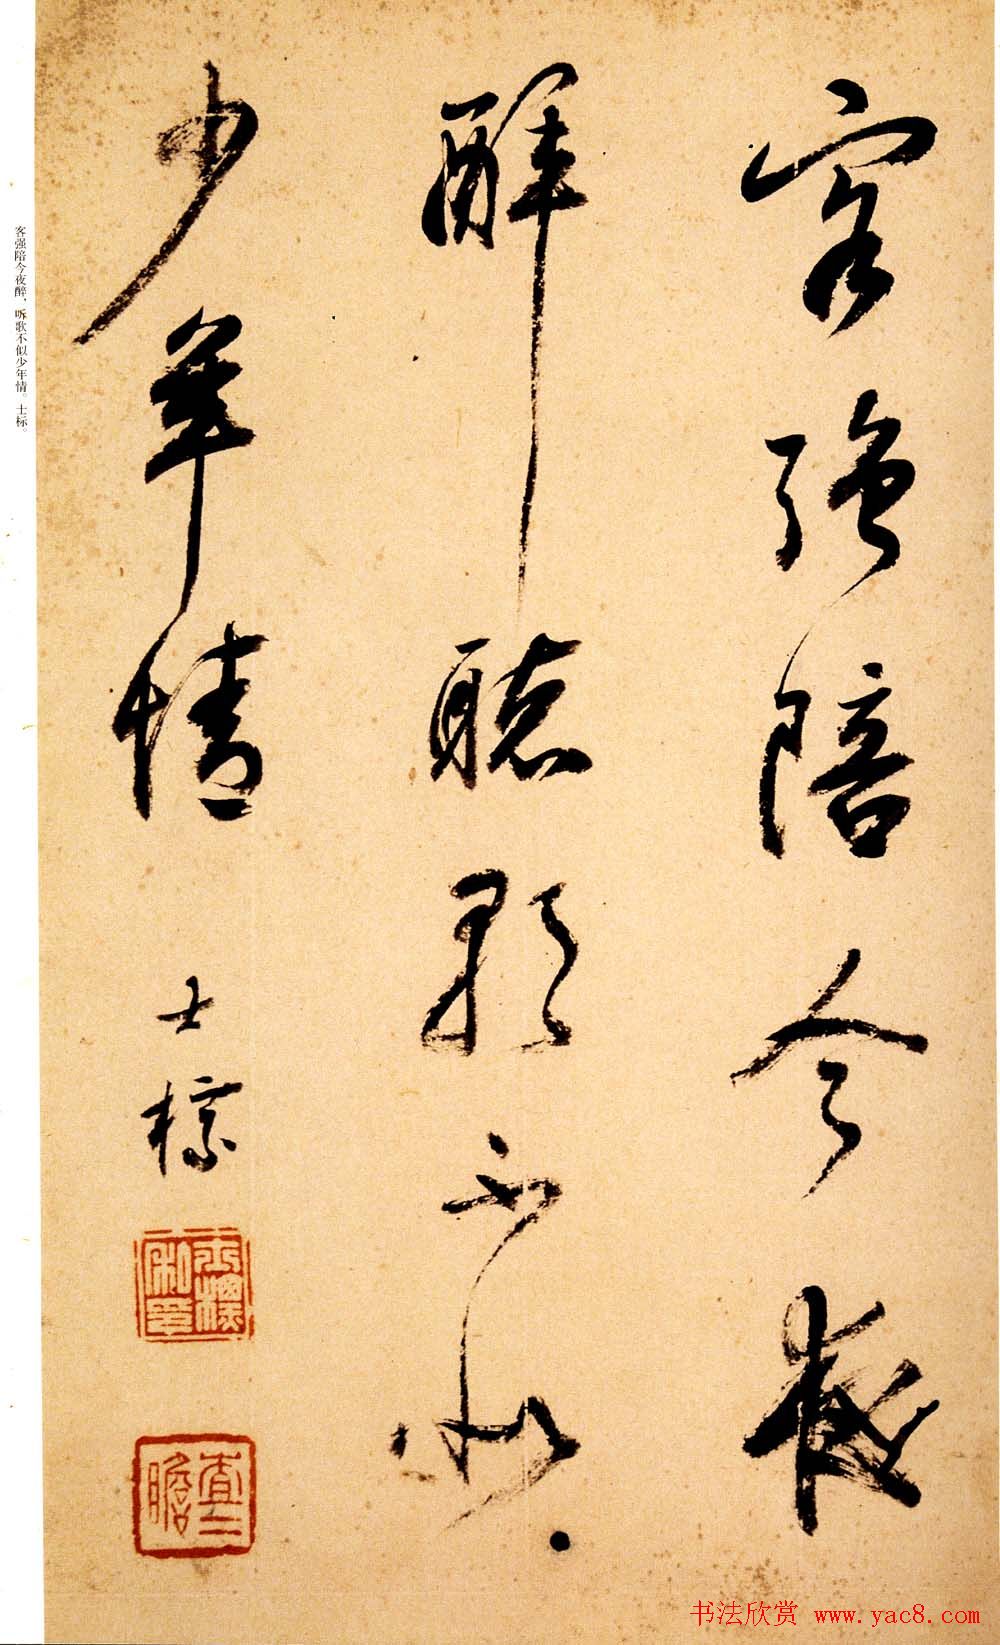 客強陪今夜
醉聽歌不似
少年情
士標
士標私印
查二瞻
客强陪今夜醉，听歌不似少年情。士标。
书法欣赏 www.yac8.com